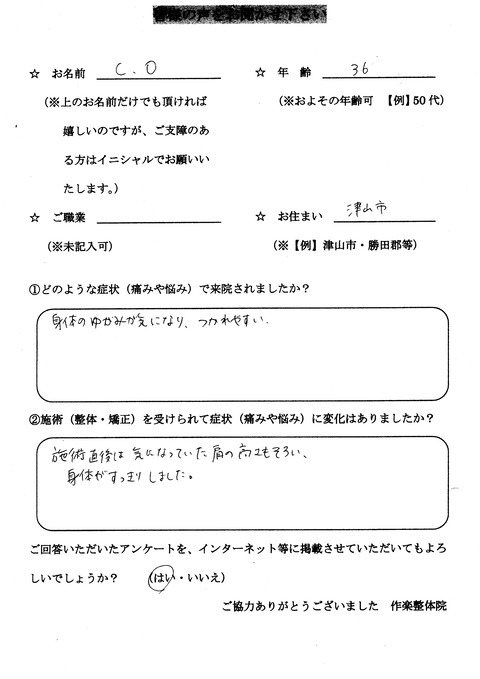 皆様の声をお聞かせ下さい
☆ お名前 C.O ☆ 年 齢 36
(※上のお名前だけでも頂ければ (※およその年齢可 【例】50代)
嬉しいのですが、ご支障のあ
る方はイニシャルでお願いい
たします。)
☆ ご職業 ☆ お住まい 津山市
(※未記入可) (※【例】津山市・勝田郡等)
①どのような症状(痛みや悩み)で来院されましたか?
身体のゆがみが気になり、つかれやすい.
②施術(整体・矯正)を受けられて症状(痛みや悩み)に変化はありましたか?
施術直後は気になっていた肩の高さもそろい、
身体がすっきりしました。
ご回答いただいたアンケートを、インターネット等に掲載させていただいてもよろ
しいでしょうか? (はい・いいえ)
ご協力ありがとうございました 作楽整体院